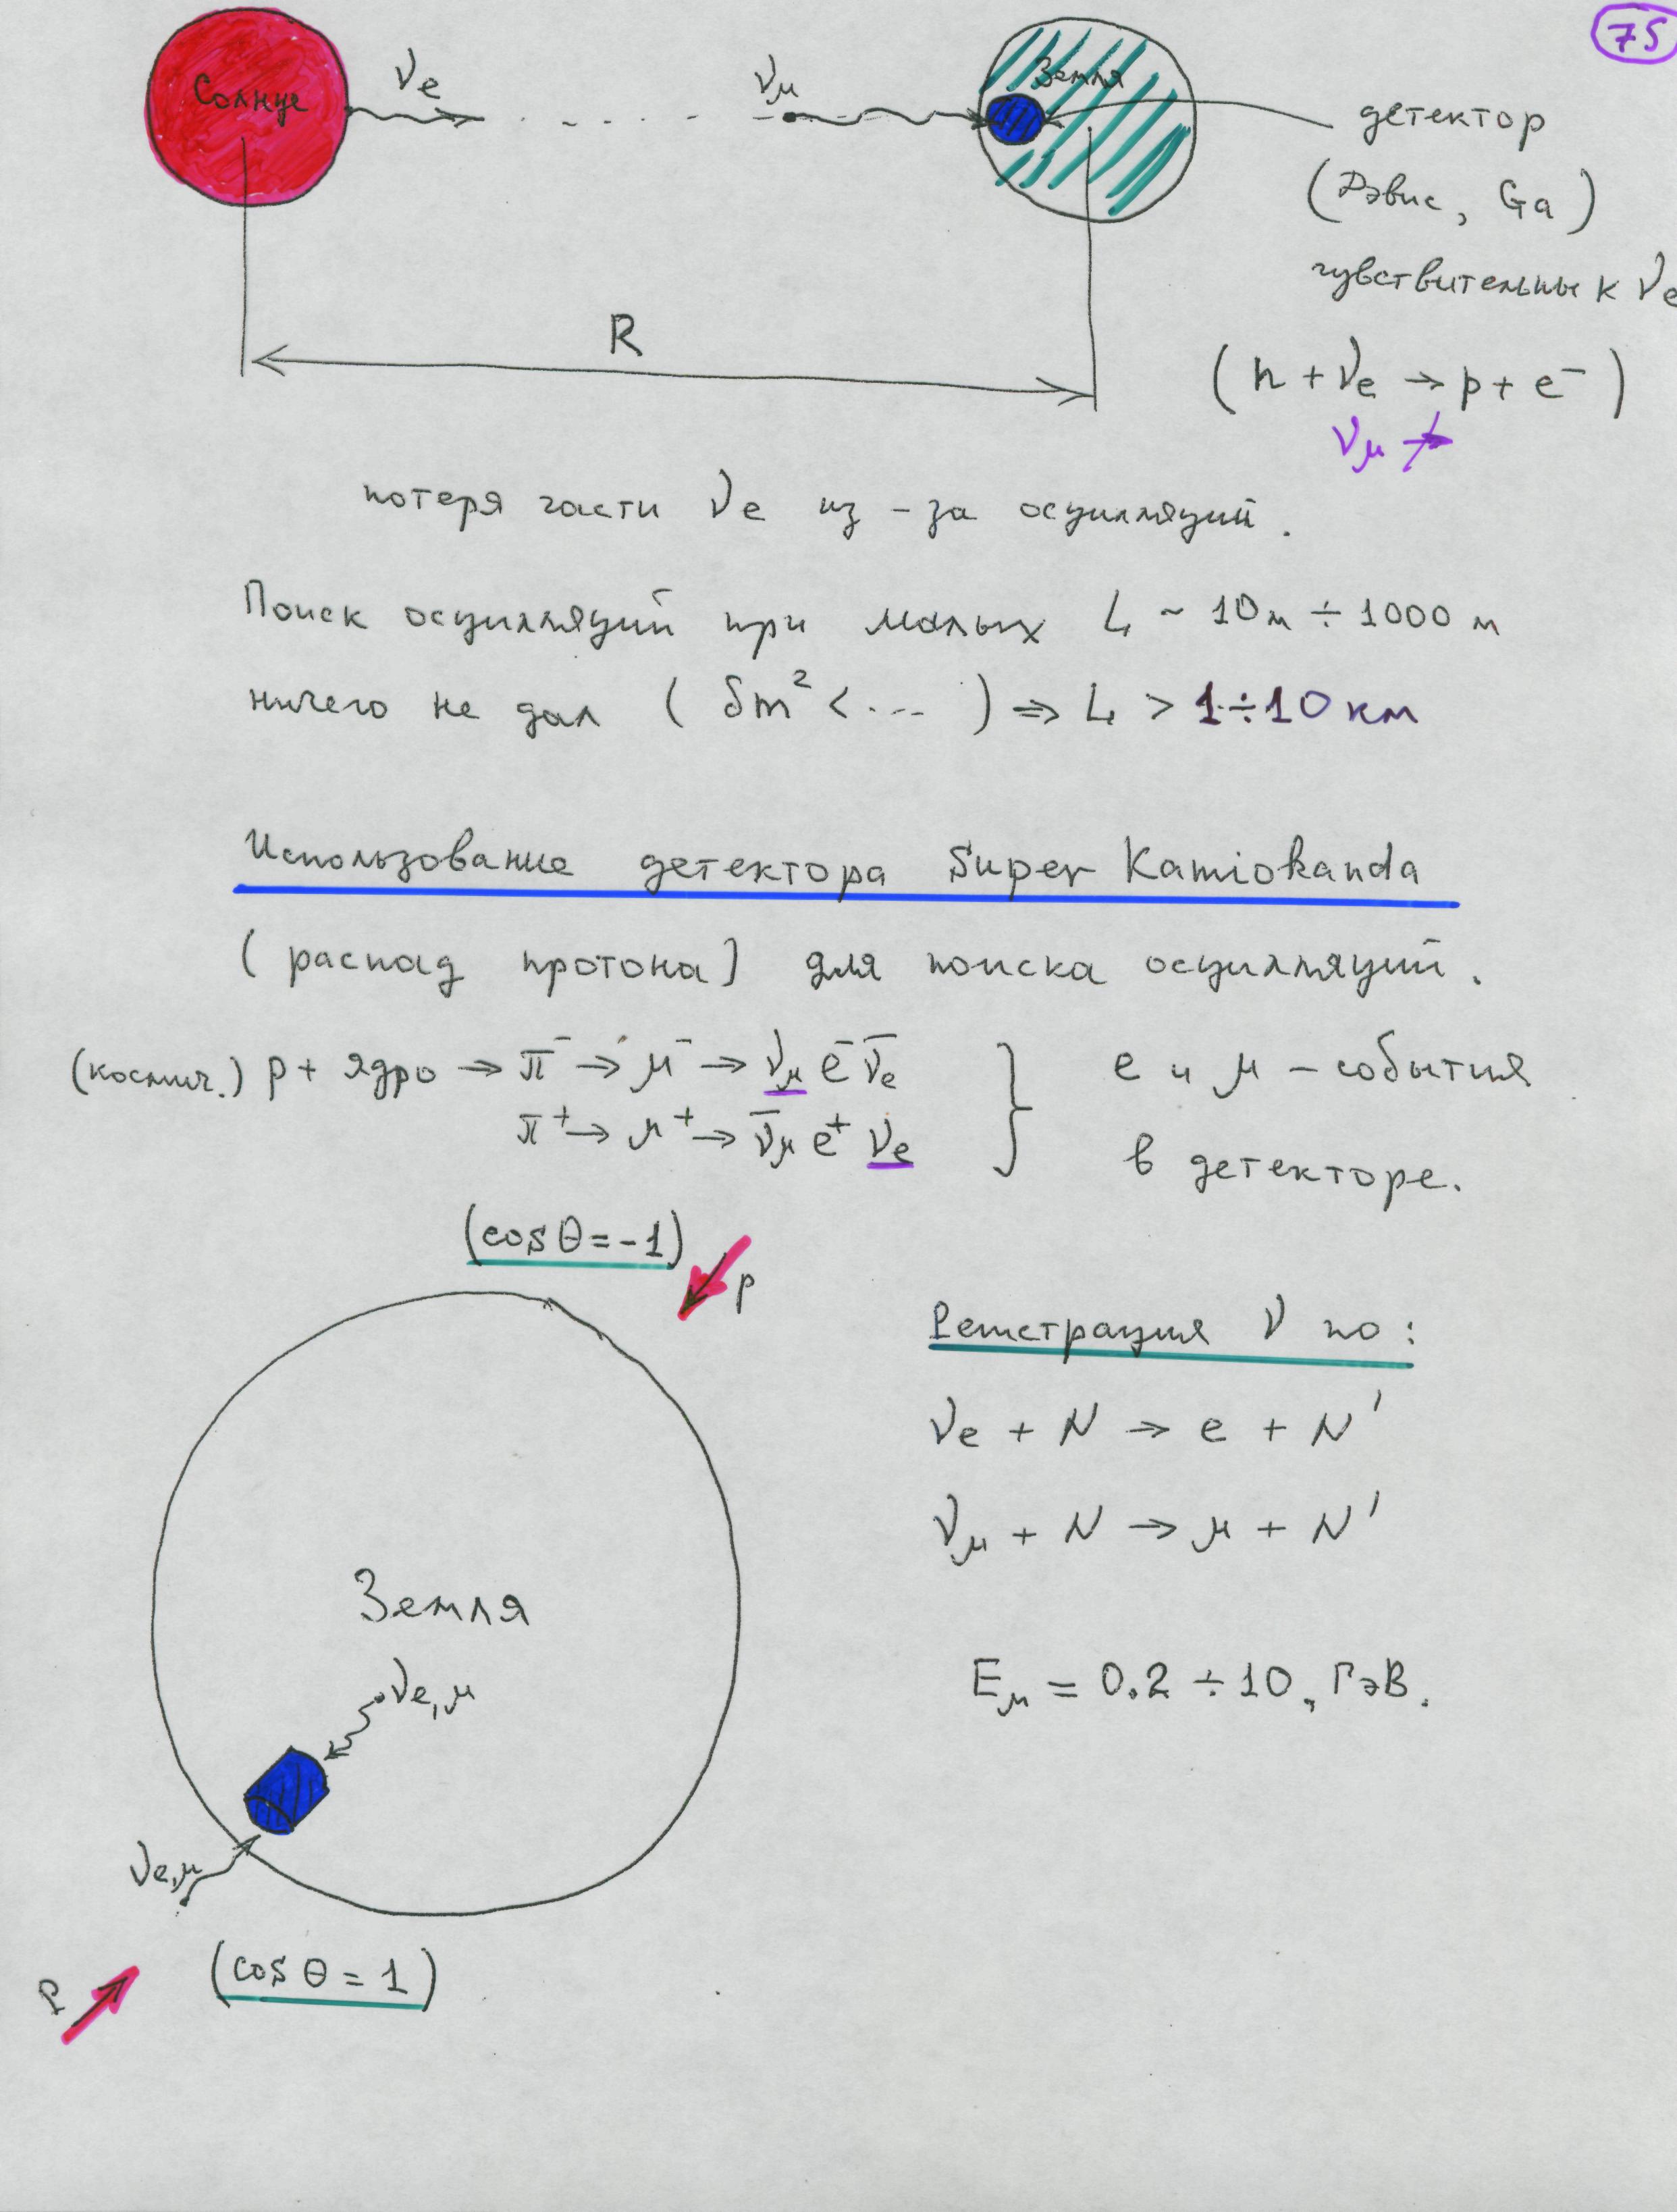 75
Солнце
νe
νμ
Земля
детектор
(Дэвис, Ga)
чувствительны к νe
R
(n + νe → p + e⁻)
νμ ↛
потеря части νe из-за осцилляций.
Поиск осцилляций при малых L ~ 10м ÷ 1000 м
ничего не дал (δm² < ...) ⇒ L > 1÷10 км
Использование детектора Super Kamiokanda
(распад протона) для поиска осцилляций.
(космич.) p + ядро → π⁻ → μ⁻ → νμ e⁻ ν̄e
π⁺ → μ⁺ → ν̄μ e⁺ νe
} e и μ – события
в детекторе.
(cos θ = -1)
p
Регистрация ν по:
νe + N → e + N'
νμ + N → μ + N'
Земля
νe,μ
Eμ = 0.2 ÷ 10, ГэВ.
νe,μ
p
(cos θ = 1)